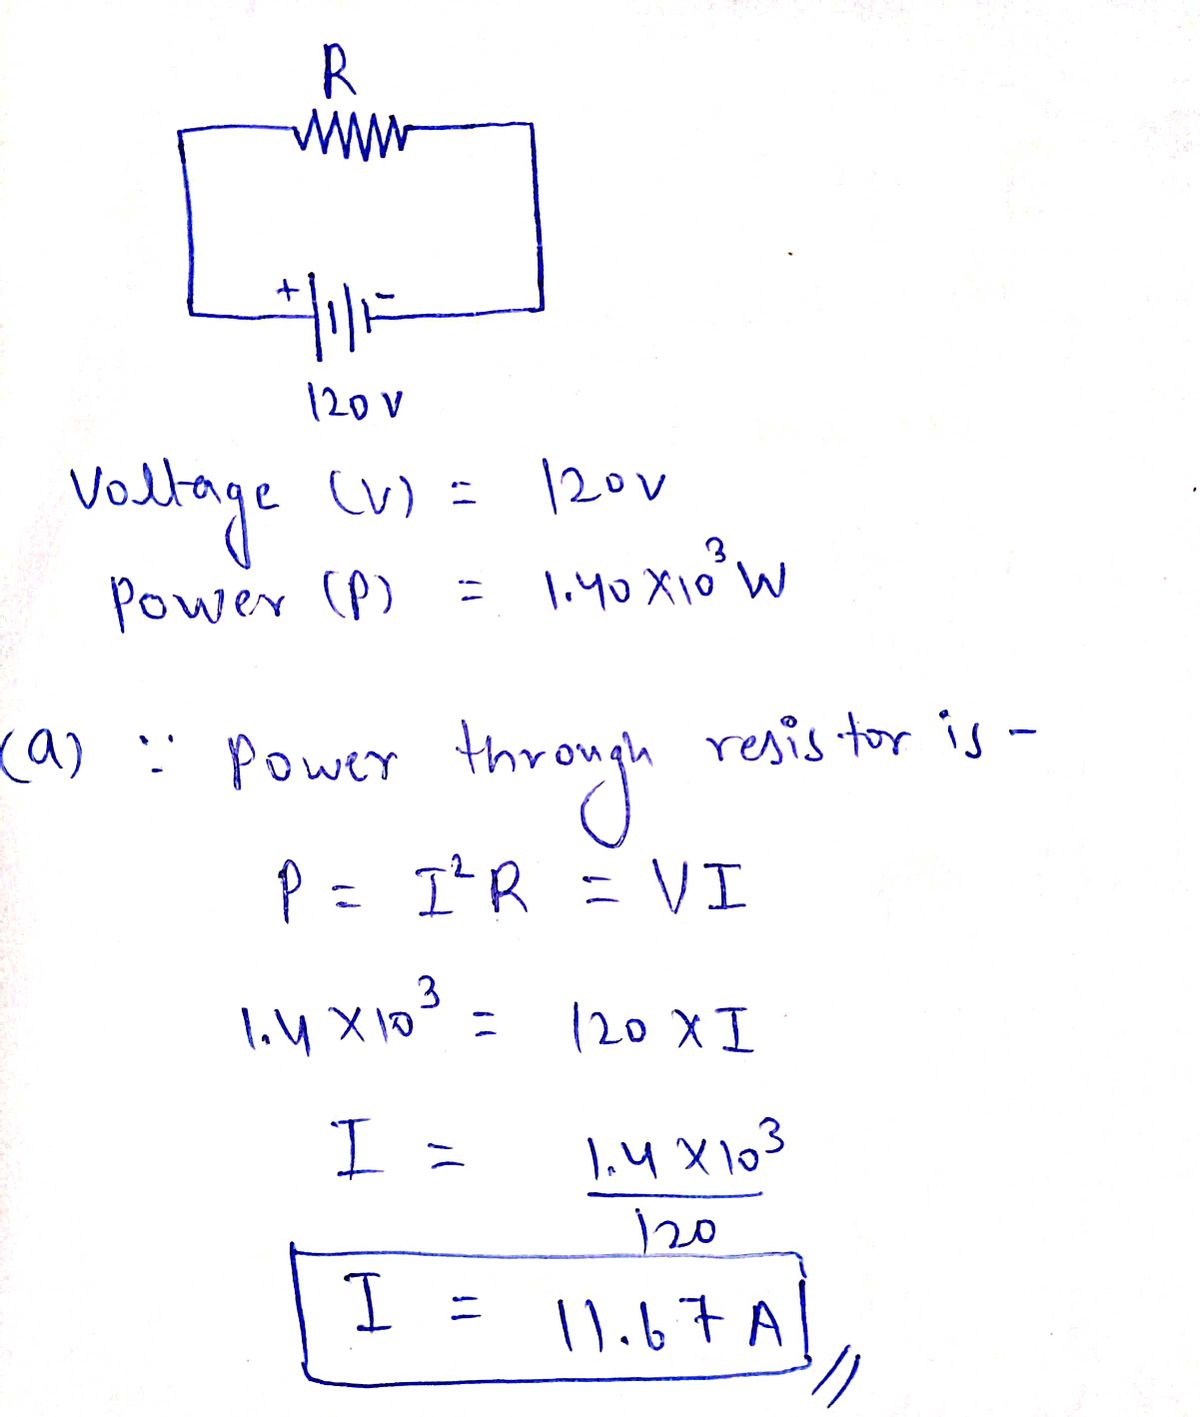 R
+ -
120 V
Voltage (V) = 120V
Power (P) = 1.40 X10³ W
(a) ∵ Power through resistor is -
P = I²R = VI
1.4 X 10³ = 120 X I
I = 1.4 X 10³
120
I = 11.67 A //